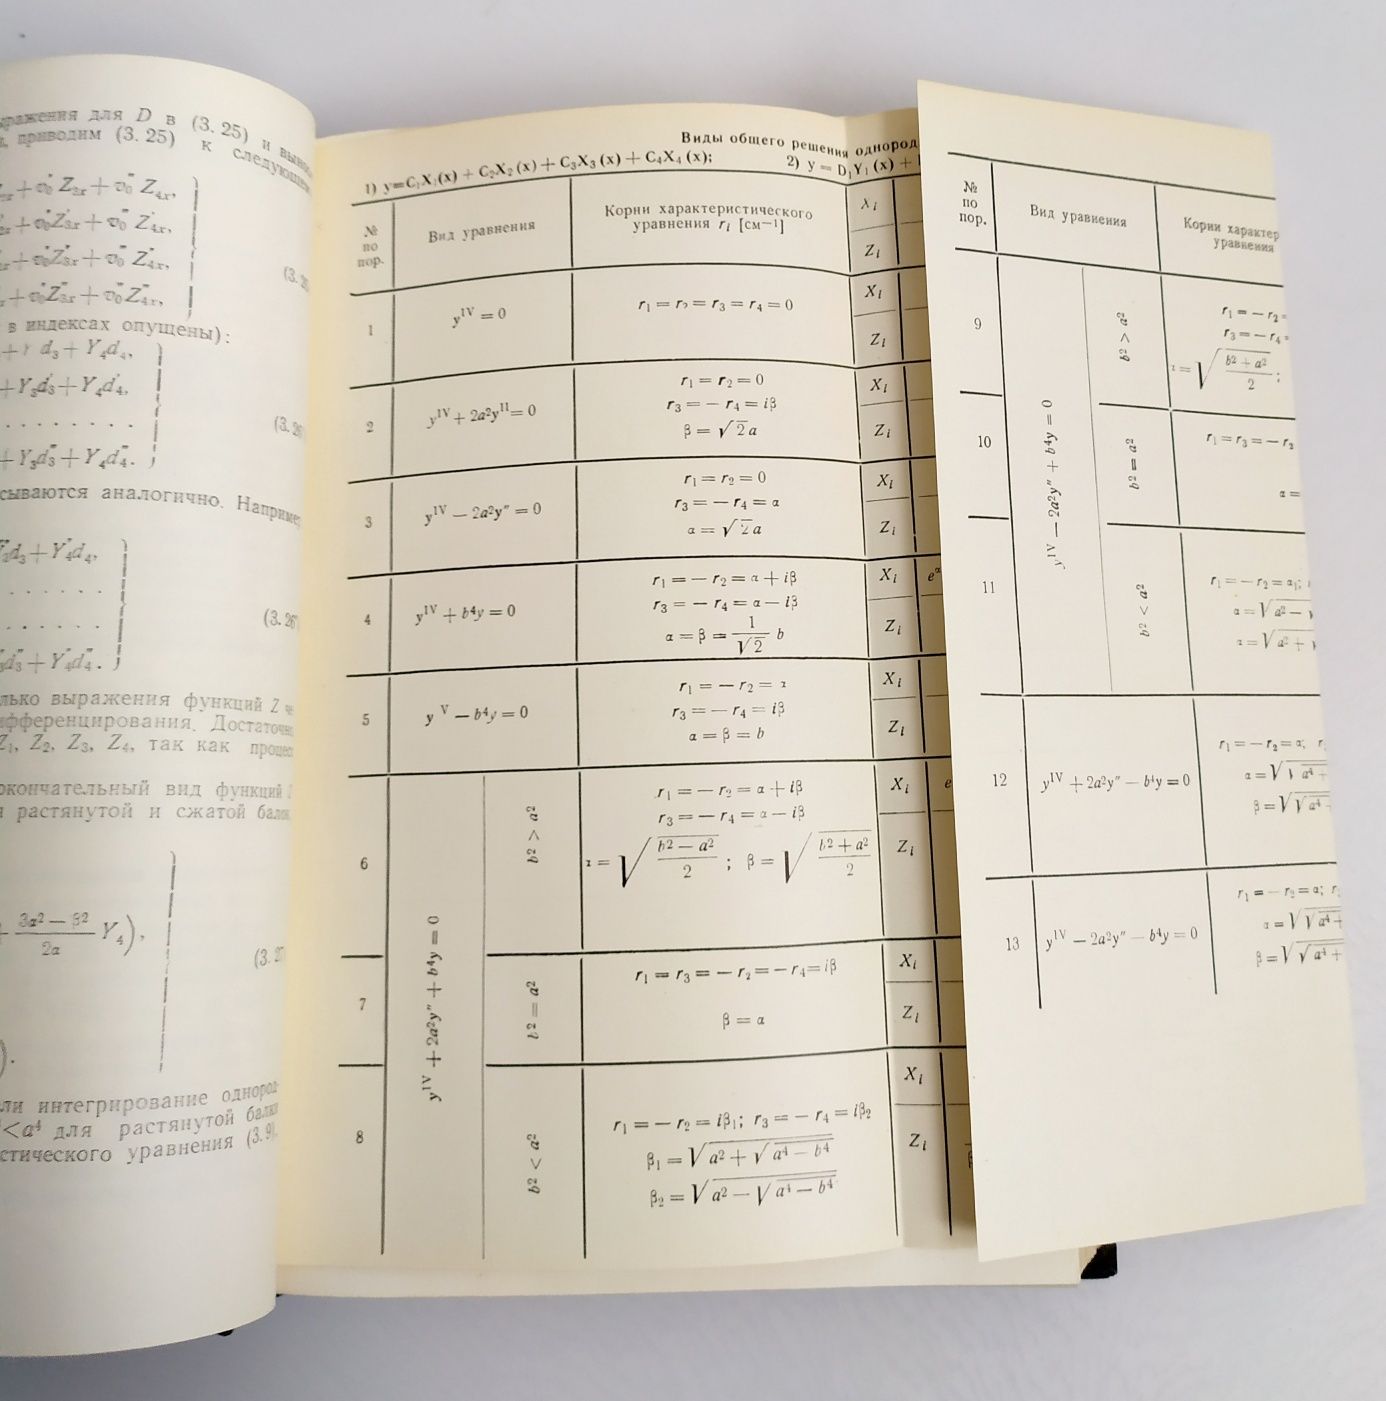 для D в (3. 25) и
приводим (3. 25) к
+ Z₂ₓ + v₀″ Z₄ₓ,
(3.
в индексах опущены):
d₃ + Y₄d₄,
+ Y₃d₃′ + Y₄d₄′,
. . . . . . . .
(3. 26
+ Y₃d₃‴ + Y₄d₄‴.
аналогично.
d₃ + Y₄″d₄,
. . . . . .
(3. 26
. . . . . .
d₃″ + Y₄″d₄″.
выражения функций Z
Достаточно
Z₁, Z₂, Z₃, Z₄, так как
окончательный вид функций
растянутой и сжатой
+ (3α² − β²)/2α Y₄),
(3. 27
).
ли интегрирование
< a⁴ для растянутой балки
уравнения (3. 9).
Виды общего решения
1) y = C₁X₁(x) + C₂X₂(x) + C₃X₃(x) + C₄X₄(x); 2) y = D₁Y₁(x) +
№ по пор.
Вид уравнения
Корни характеристического
уравнения rᵢ [см⁻¹]
Xᵢ
Zᵢ
1
yᴵⱽ = 0
r₁ = r₂ = r₃ = r₄ = 0
Xᵢ
Zᵢ
2
yᴵⱽ + 2a²yᴵᴵ = 0
r₁ = r₂ = 0
r₃ = − r₄ = iβ
β = √2 a
Xᵢ
Zᵢ
3
yᴵⱽ − 2a²y″ = 0
r₁ = r₂ = 0
r₃ = − r₄ = α
α = √2 a
Xᵢ
Zᵢ
4
yᴵⱽ + b⁴y = 0
r₁ = − r₂ = α + iβ
r₃ = − r₄ = α − iβ
α = β = 1/√2 b
Xᵢ
Zᵢ
5
y ⱽ − b⁴y = 0
r₁ = − r₂ = α
r₃ = − r₄ = iβ
α = β = b
Xᵢ
Zᵢ
yᴵⱽ + 2a²y″ + b⁴y = 0
6
b² > a²
r₁ = − r₂ = α + iβ
r₃ = − r₄ = α − iβ
α = √((b² − a²)/2) ; β = √((b² + a²)/2)
Xᵢ
Zᵢ
7
b² = a²
r₁ = r₃ = − r₂ = − r₄ = iβ
β = α
Xᵢ
Zᵢ
8
b² < a²
r₁ = − r₂ = iβ₁; r₃ = − r₄ = iβ₂
β₁ = √(a² + √(a⁴ − b⁴))
β₂ = √(a² − √(a⁴ − b⁴))
Xᵢ
Zᵢ
№ по пор.
Вид уравнения
Корни
уравнения
yᴵⱽ − 2a²y″ + b⁴y = 0
9
b² > a²
r₁ = − r₂
r₃ = − r₄
= √((b² + a²)/2) ;
10
b² = a²
r₁ = r₃ = − r₂
α =
11
b² < a²
r₁ = − r₂ = α₁;
α = √a² −
= √a² +
12
yᴵⱽ + 2a²y″ − b⁴y = 0
r₁ = − r₂ = α;
α = √√a⁴ +
β = √√a⁴
13
yᴵⱽ − 2a²y″ − b⁴y = 0
r₁ = − r₂ = α;
α = √√a⁴ +
β = √√a⁴ +